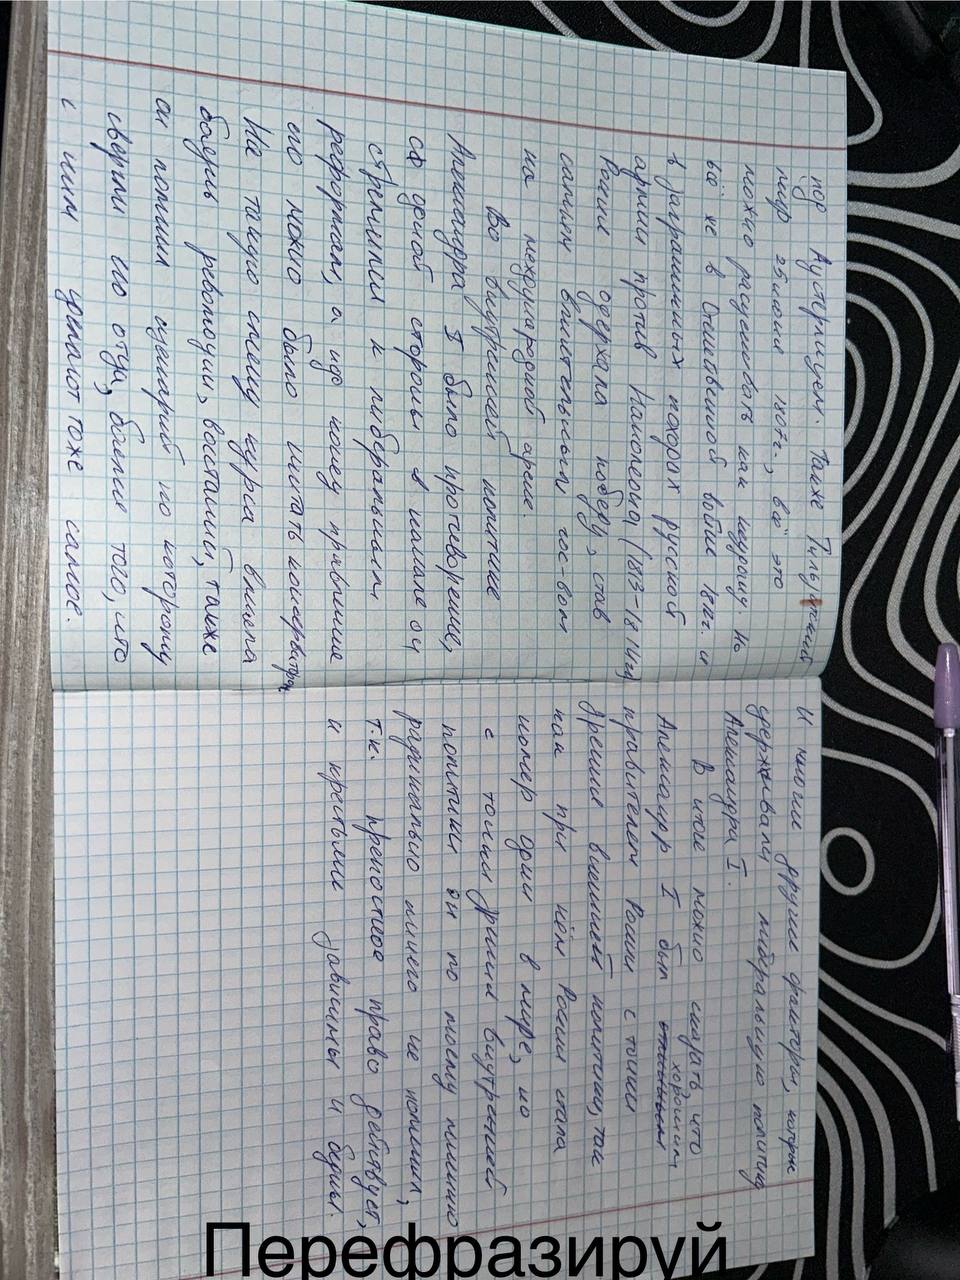 под Аустерлицем. Также Тильзитский
мир 25 июня 1807г., всё это
можно расценивать как неудачу. Но
всё же в Отечественной войне 1812г. и
в заграничных походах русской
армии против Наполеона (1813-1814гг)
Россия одержала победу, став
самым влиятельным гос-вом
на международной арене.
Во внутренней политике
Александра I было противоречие,
с одной стороны в начале он
стремился к либеральным
реформам, а под конец правления
его можно было считать консерватором
На такую смену курса влияла
боязнь революции, восстаний, также
он помнил сценарий по которому
свергли его отца, более того, что
с ним сделают тоже самое.
И многие другие факторы, которые
сдерживали либеральную политику
Александра I.
В итоге можно сказать, что
Александр I был хорошим
правителем России с точки
зрения внешней политики, так
как при нём Россия стала
номер один в мире, но
с точки зрения внутренней
политики он по моему мнению
радикально ничего не поменял,
т.к. крепостное право действует,
и крестьяне зависимы и бедны.
Перефразируй